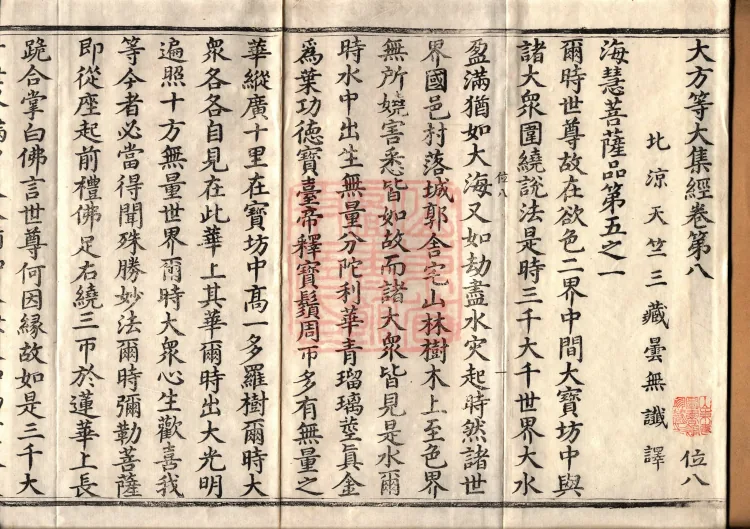 大方等大集經卷第八
位八
北涼天竺三藏曇無讖譯
海慧菩薩品第五之一
爾時世尊故在欲色二界中間大寶坊中與
諸大衆圍繞說法是時三千大千世界大水
位八
一
盈滿猶如大海又如劫盡水灾起時然諸世
界國邑村落城郭舍宅山林樹木上至色界
無所嬈害悉皆如故而諸大衆皆見是水爾
時水中出生無量分陀利華青瑠璃莖真金
爲葉功德寶臺帝釋寶鬚周帀多有無量之
華縱廣十里在寶坊中高一多羅樹爾時大
衆各各自見在此華上其華爾時出大光明
遍照十方無量世界爾時大衆心生歡喜我
等今者必當得聞殊勝妙法爾時彌勒菩薩
即從座起前禮佛足右繞三帀於蓮華上長
跪合掌白佛言世尊何因緣故如是三千大